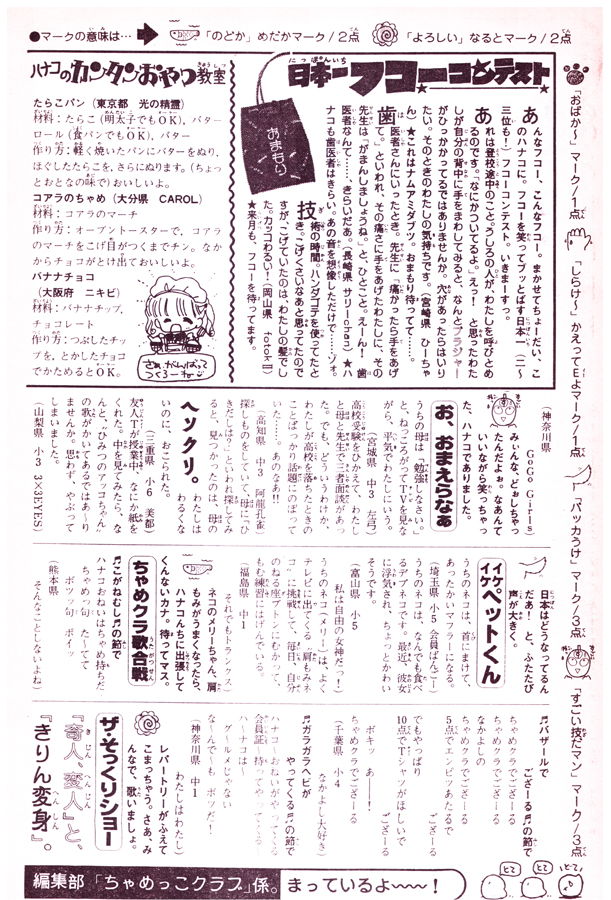 ●マークの意味は…
「のどか」めだかマーク/2点
「よろしい」なるとマーク/2点
「おばか〜」マーク/1点
「しらけ〜」かえってEよマーク/1点
「パッカうけ」マーク/3点
「すごい技だマン」マーク/3点
日本一フコーコンテスト
にっぽんいち
おまもり
あんなフコー、こんなフコー。まかせてちょーだい、こ
のハナコに。フコーを笑ってブッとばす日本一（二〜
三位も！）フコーコンテスト。いきまーすっ。
あれは登校途中のこと。うしろの人が、わたしを呼びとめ
るのです。「なにかついてるよ」えっ！　と思ったわた
しが自分の背中に手をまわしてみると、なんとブラジャー
がひっかかってるではありませんか。穴があったらはいり
たい。そのときのわたしの気持ちです。（宮崎県　ひーちゃ
ん）★これはナムアミダブツ。おまもり待ってて。
歯医者さんにいったとき。先生に「痛かったら手をあげ
て」といわれ、その痛さに手をあげたわたしに、その
先生は「がまんしましょうね。」と、ひとこと。えーん！　歯
医者なんて……きらいだあ。（長崎県　サリーchan）★ハ
ナコも歯医者はきらい。あの音を想像しただけで……ゾォ。
技術の時間。ハンダゴテを使ってたと
き。こげくさいなあと思ってたので
すが、こげていたのは、わたしの髪でし
た。カッコわるい！（岡山県　tototoⅢ）
★来月も、フコーを待ってます。
ハナコのカンタンおやつ教室
きょうしつ
たらこパン（東京都　光の精霊）
材料：たらこ（明太子でもOK）、バター
ロール（食パンでもOK）、バター
作り方：軽く焼いたパンにバターをぬり、
ほぐしたたらこを、さらにぬります。（ちょ
っとおとなの味で）おいしいよ。
コアラのちゃめ（大分県　CAROL）
材料：コアラのマーチ
作り方：オーブントースターで、コアラ
のマーチをこげ目がつくまでチン。なか
からチョコがとけ出ておいしいよ。
バナナチョコ
（大阪府　ニキビ）
材料：バナナチップ、
チョコレート
作り方：つぶしたチッ
プを、とかしたチョコ
でかためるとOK。
さぁ、がんばって
つくろーね
（神奈川県　GoGo Girls）
みぃんな、どぉしちゃっ
たんだよぉ。なあんて
いいながら笑っちゃっ
た、ハナコでありました。
お、おまえらなぁ
うちの母は「勉強しなさい。」
と、ねっころがってTVを見な
がら、平気でわたしにいう。
（宮城県　中3　左弓）
高校受験をひかえて、わたし
と母と先生で三者面談があっ
た。でも、どういうわけか、
わたしが高校を落ちたときの
ことばっかり話題にのぼって
いた……。あのなあ!!
（高知県　中3　阿龍孔雀）
探しものをしていて母に「ひ
きだしは？」といわれ探してみ
ると、見つかったのは、母の
ヘソックリ。わたしは
わるくな
いのに、おこられた。
（三重県　小6　美都）
友人Tが授業中、なにか紙を
くれた。中を見てみたら、な
んと、“ひみつのアッコちゃん”
の歌がかいてあるではあ〜り
ませんか。思わず、やぶって
しまいました。
（山梨県　小3　3×3EYES）
日本はどうなってるん
だあ！　と、ふたたび
声が大きく。
イケイケペットくん
うちのネコは、首にまけて、
あったかいマフラーになる。
（埼玉県　小5　会員ばんごー）
うちのネコは、なんでも食べ
るデブネコです。最近、彼女
に浮気され、ちょっとかわい
そうです。
（富山県　小5
私は自由の女神だっ！）
うちのネコ（メリー）は、よく
テレビに出てくる“肩もみネ
コ”に挑戦して、毎日、自分
のねる座ブトンにむかって、
もむ練習にはげんでいる。
（福島県　中1
それでもトランクス）
ネコのメリーちゃん、肩
もみがうまくなったら、
ハナコんちに出張して
くんないカナ。待ってマス。
ちゃめクラ歌合戦
うたがっせん
♬こがねむし♬の節で
ちゃめっ句　たーてて
ハナコおねいはちゃめ持ちだ
ボツっ句　ポイッ
（熊本県
そんなことしないよね）
♬バザールで
ござーる♬の節で
ちゃめクラでござーる
ちゃめクラでござーる
なかよしの
ちゃめクラでござーる
5点でエンピツあたるで
ござーる
でもやっぱり
10点でTシャツがほしいで
ござーる
ボキッ　あ――！
（千葉県　小4
なかよし大好き）
♬ガラガラヘビが
やってくる♬の節で
ハナコ〜おねいがやってくる
会員証〜持ってやってくる
ハ〜ナコは〜
グ〜ルメじゃない
な〜んで〜も　ボツだ！
（神奈川県　中1
わたしはわたし）
レパートリーがふえて
こまっちゃう。さあ、み
んなで、歌いましょ。
ザ・そっくりショー
『奇人、変人』と、
きじん　へんじん
『きりん変身』。
へんしん
編集部「ちゃめっこクラブ」係。まっているよ〜〜！
とて　とて　いとて。